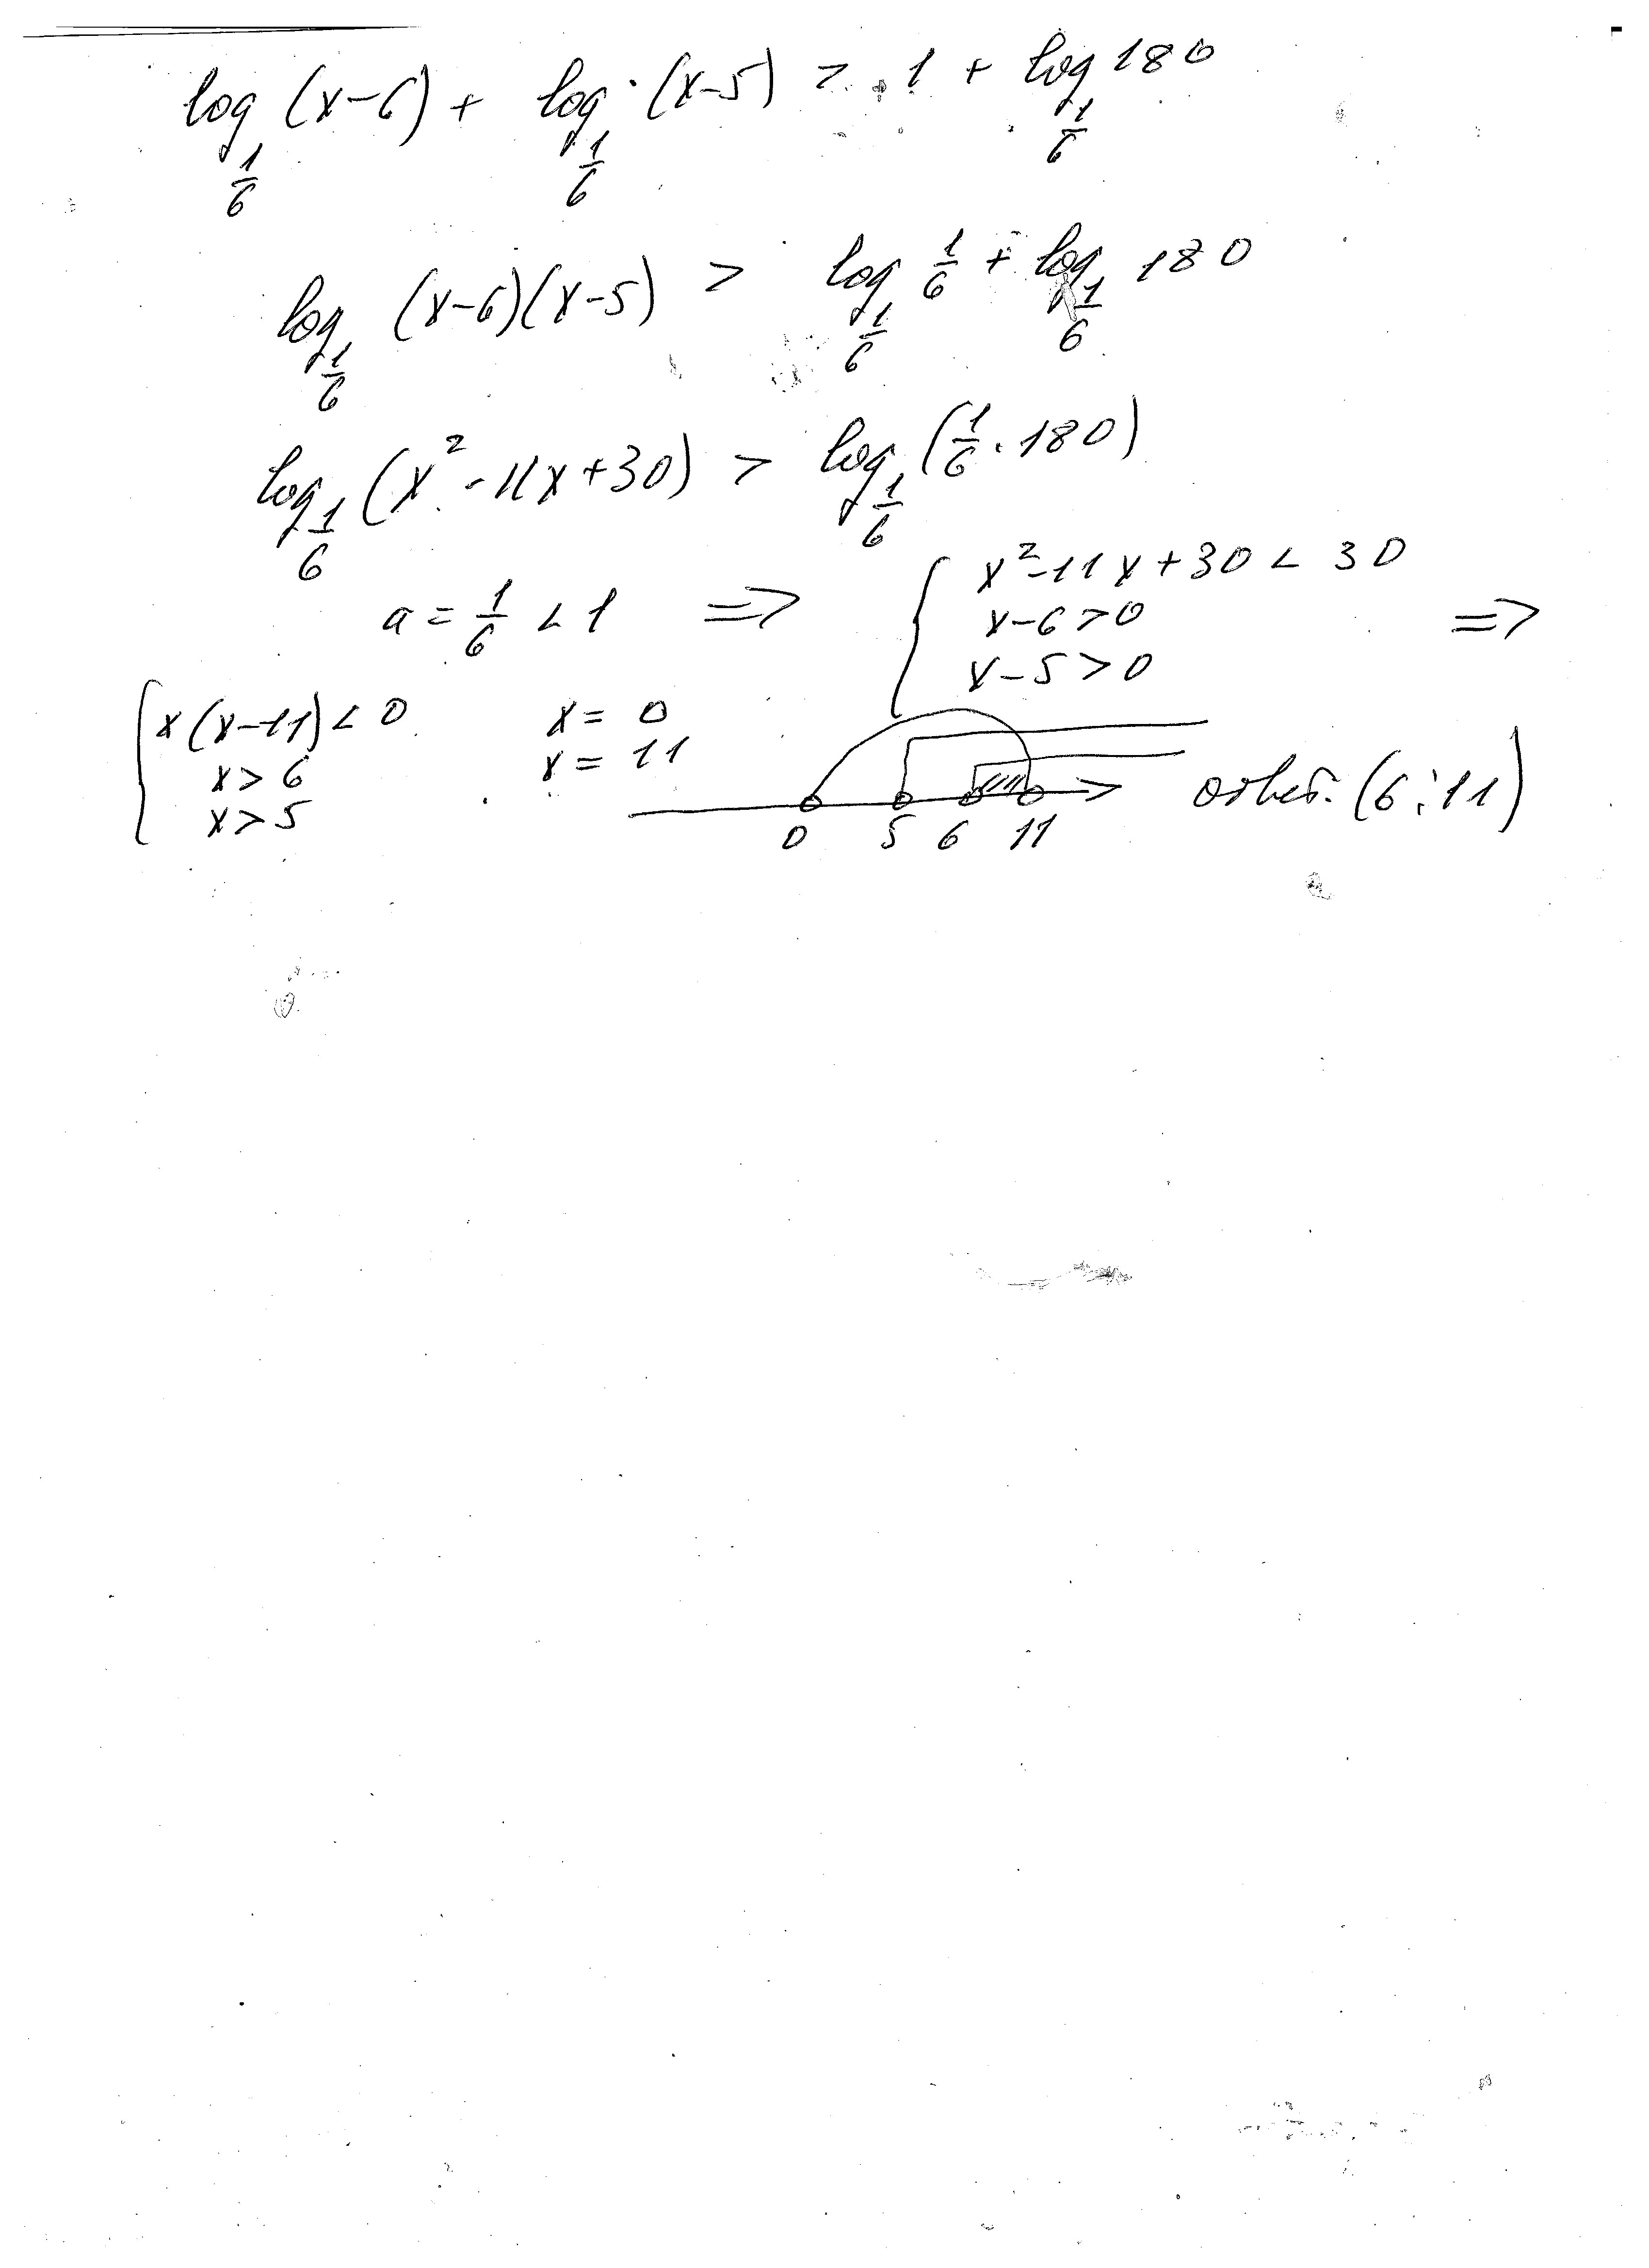 log_{1/6} (x-6) + log_{1/6} (x-5) > 1 + log_{1/6} 180
log_{1/6} (x-6)(x-5) > log_{1/6} 1/6 + log_{1/6} 180
log_{1/6} (x² - 11x + 30) > log_{1/6} (1/6 · 180)
a = 1/6 < 1 => { x² - 11x + 30 < 30
x - 6 > 0 =>
x - 5 > 0
{ x(x-11) < 0 x = 0
x > 6 x = 11
x > 5
0 5 6 11
ответ: (6; 11)